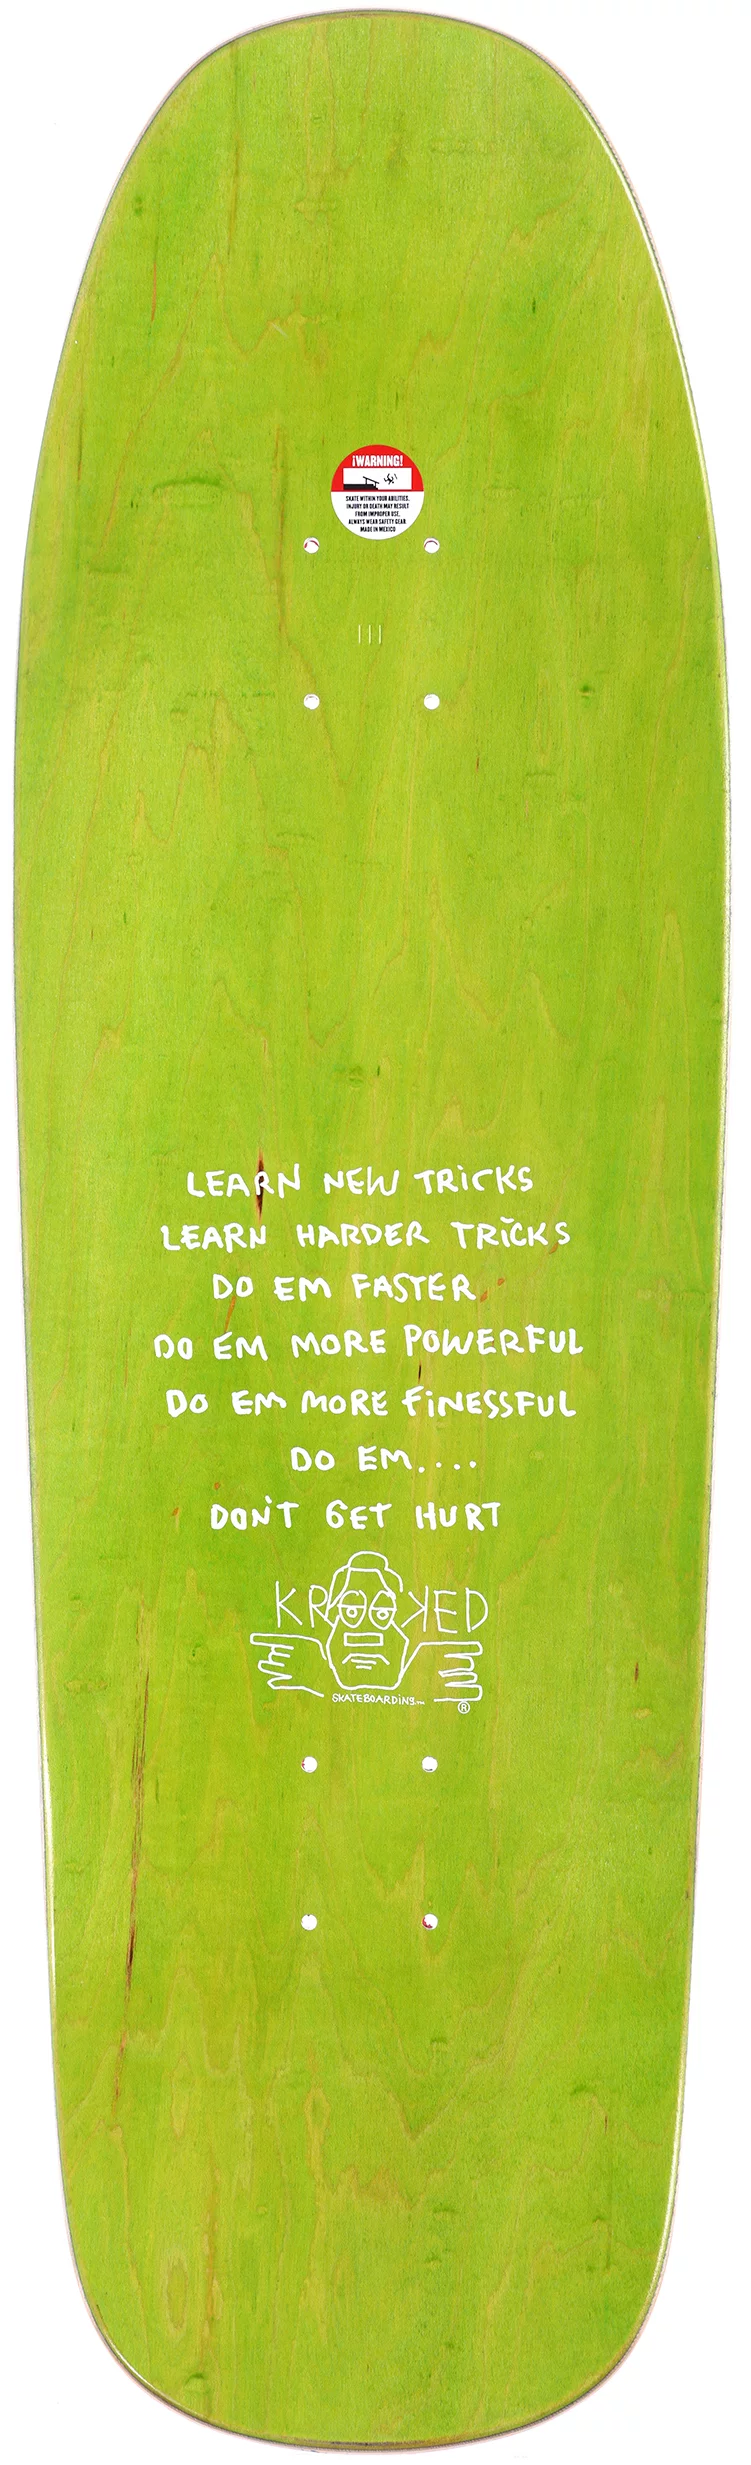 ¡WARNING!
SKATE WITHIN YOUR ABILITIES.
INJURY OR DEATH MAY RESULT
FROM IMPROPER USE.
ALWAYS WEAR SAFETY GEAR
MADE IN MEXICO
LEARN NEW TRICKS
LEARN HARDER TRICKS
DO EM FASTER
DO EM MORE POWERFUL
DO EM MORE FINESSFUL
DO EM....
DON'T GET HURT
KROOKED
SKATEBOARDING™
®